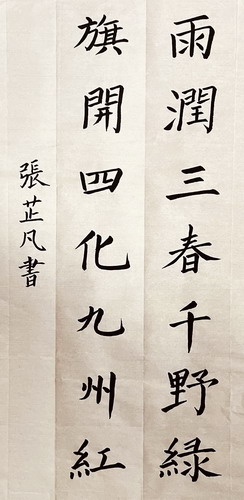 雨潤三春千野緑
旗開四化九州紅
張芷凡書